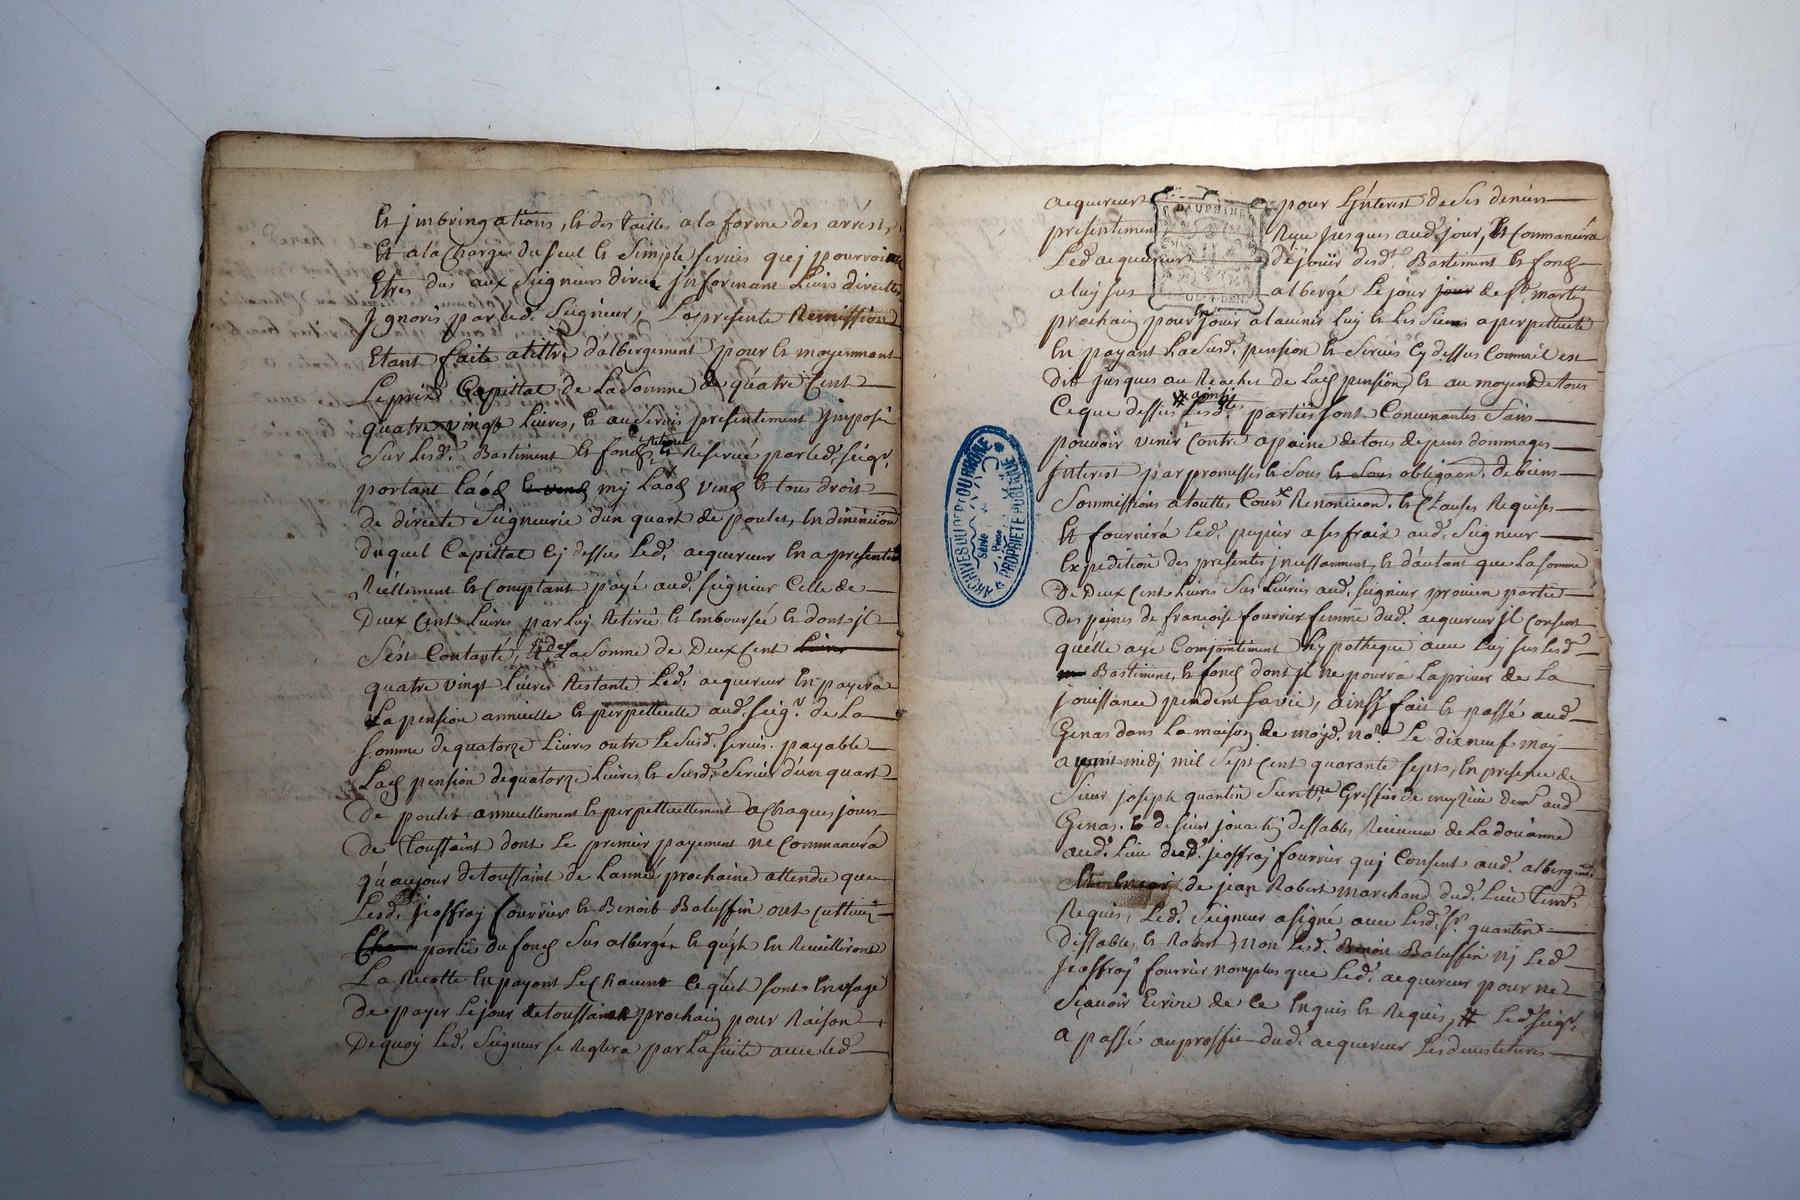 et jmbringations, et des tailles a la forme des arrest,
et a la Charge du seul et simple servis quj pourroient
Etres dus aux Seigneurs direct jnformant Leurs directtes
Jgnorés par led. Seigneur, La presente Remission
Etant faite a tittre d'albergement pour et moyennant
Le prix Capittal de La Somme de quatre Cent
quatre vingt Livres, et au Servis presentement jmposé
Sur Lesd. Bastiment et fond et Reservé par led. seigr.
portant laod my Laod vend et tous droit
de directe Seigneurie d'un quart de poulet, en diminution
duquel Capittal Cy dessus Led. acquereur en a presentement
Réellement et Comptant payé aud. seigneur Celle de
Deux Cent Livres par luy Retirée et Emboursée et dont jl
s'est Contanté, et de La Somme de Deux Cent Livres
quatre vingt Livres Restante Led. acquereur en payera
La pension annuelle et perpettuelle aud. seigr. de La
somme de quatorze Livres outre Le Susd. servis. payable
Lad pension de quatorze Livres et Susd. Servis d'un quart
de poulet annuellement et perpettuellement a Chaques jours
de Toussaint dont Le premier payement ne Commancera
qu'au jour de toussaint de L'année prochaine attendu que
Lesd. jeoffray fourrier et Benoit Baluffin ont Cultivé
partie du fond Sus albergé, et qu'jls en Recuilliront
La Recolte en payant Le Chacun Ce qu'il sont en usage
de payer Le jour de toussaint prochain pour Raison
De quoy Led. Seigneur se Reglera par La suitte avec led
acquereur pour L'jnterest de Ses deniers
presentement Reçu jusques aud. jour, et Commancera
Led acquereur de joüir desd. Bastiment et fond
a luy sus albergé Le jour jour de st. martin
prochain pour en jouir a l'avenir luy et les Siens a perpettuité
En payant La Susd. pension et Servis Cy dessus Comm'il est
dit jusques au Rachet de Lad pension et au moyen de tous
Ce que dessus # ainsy Lesdtes parties sont Convenantes Sans
pouvoir venir Contre a paine de tous depens dommages
jnterest par promesses et Sous et Sous obligaon. de biens
Sommissions a touttes Cours Renonciaon. et Clauses Requises
Et fournira Led. pepier a ses fraix aud. Seigneur
Expedition des presentes jncessamment, et d'autant que La somme
De Deux Cent Livres Sus Livrés aud. seigneur provien partie
des paines de francoise fourrier femme dud. acquereur jl Consent
qu'elle aye Conjointement hypotheque avec Luy sur Lesd
Bastiment, et fond dont jl ne pourra La priver de La
jouissance pendent Sa vie, ainsy fait et passé aud
Genas dans La maison de moyd. nore. Le dix neuf may
a midj mil Sept Cent quarante sept, En presence de
Sieur joseph quantin Greffier de meyzieu demt. aud
Genas. et de sieur dessables Receveur de La doüanne
aud. Lieu dud. jeoffray fourrier quj Consent aud. albergemt.
de jean Robert marchand dud. Lieu temt.
Requis, Led. Seigneur a signé avec Lesd. sr. quantin
dessables, et Robert, non Lesd. Benoit Baluffin nj Led
jeoffray fourrier nomplus que Led. acquereur pour ne
Sçavoir Ecrire de Ce Enquis et Requis, # Led seigr.
a passé au proffit dud. acquereur
G. DAUPHINÉ
ARCHIVES DU DEPT DU RHÔNE
Série
Pièce
PROPRIÉTÉ PUBLIQUE